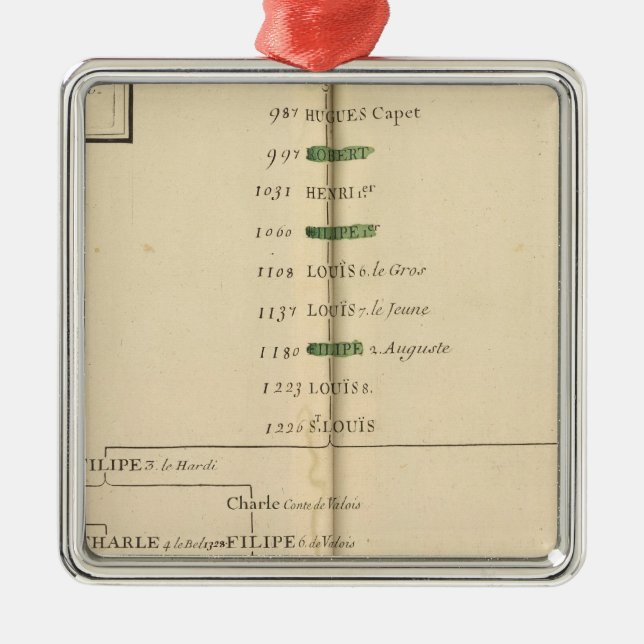 987 HUGUES Capet
997 ROBERT
1031 HENRI 1.er
1060 FILIPE 1.er
1108 LOUÏS 6. le Gros
1137 LOUÏS 7. le Jeune
1180 FILIPE 2. Auguste
1223 LOUÏS 8.
1226 S.T LOUÏS
FILIPE 3. le Hardi
Charle Conte de Valois
CHARLE 4 le Bel 1328 FILIPE 6. de Valois